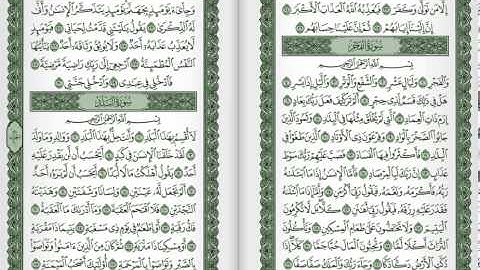 إِلَّا مَن تَوَلَّىٰ وَكَفَرَ ۝٢٣ فَيُعَذِّبُهُ ٱللَّهُ ٱلْعَذَابَ ٱلْأَكْبَرَ ۝٢٤
إِنَّ إِلَيْنَآ إِيَابَهُمْ ۝٢٥ ثُمَّ إِنَّ عَلَيْنَا حِسَابَهُم ۝٢٦
سُورَةُ الفَجْرِ
بِسْمِ ٱللَّهِ ٱلرَّحْمَٰنِ ٱلرَّحِيمِ
وَٱلْفَجْرِ ۝١ وَلَيَالٍ عَشْرٍ ۝٢ وَٱلشَّفْعِ وَٱلْوَتْرِ ۝٣ وَٱلَّيْلِ إِذَا يَسْرِ ۝٤
هَلْ فِي ذَٰلِكَ قَسَمٌ لِّذِي حِجْرٍ ۝٥ أَلَمْ تَرَ كَيْفَ فَعَلَ رَبُّكَ بِعَادٍ ۝٦
إِرَمَ ذَاتِ ٱلْعِمَادِ ۝٧ ٱلَّتِي لَمْ يُخْلَقْ مِثْلُهَا فِي ٱلْبِلَٰدِ ۝٨ وَثَمُودَ ٱلَّذِينَ
جَابُوا۟ ٱلصَّخْرَ بِٱلْوَادِ ۝٩ وَفِرْعَوْنَ ذِي ٱلْأَوْتَادِ ۝١٠ ٱلَّذِينَ طَغَوْا۟ فِي
ٱلْبِلَٰدِ ۝١١ فَأَكْثَرُوا۟ فِيهَا ٱلْفَسَادَ ۝١٢ فَصَبَّ عَلَيْهِمْ رَبُّكَ سَوْطَ
عَذَابٍ ۝١٣ إِنَّ رَبَّكَ لَبِٱلْمِرْصَادِ ۝١٤ فَأَمَّا ٱلْإِنسَٰنُ إِذَا مَا ٱبْتَلَىٰهُ رَبُّهُۥ
فَأَكْرَمَهُۥ وَنَعَّمَهُۥ فَيَقُولُ رَبِّيٓ أَكْرَمَنِ ۝١٥ وَأَمَّآ إِذَا مَا ٱبْتَلَىٰهُ
فَقَدَرَ عَلَيْهِ رِزْقَهُۥ فَيَقُولُ رَبِّيٓ أَهَٰنَنِ ۝١٦ كَلَّا ۖ بَل لَّا تُكْرِمُونَ
ٱلْيَتِيمَ ۝١٧ وَلَا تَحَٰٓضُّونَ عَلَىٰ طَعَامِ ٱلْمِسْكِينِ ۝١٨ وَتَأْكُلُونَ
ٱلتُّرَاثَ أَكْلًا لَّمًّا ۝١٩ وَتُحِبُّونَ ٱلْمَالَ حُبًّا جَمًّا ۝٢٠ كَلَّآ إِذَا
دُكَّتِ ٱلْأَرْضُ دَكًّا دَكًّا ۝٢١ وَجَآءَ رَبُّكَ وَٱلْمَلَكُ صَفًّا صَفًّا ۝٢٢
وَجِا۟يٓءَ يَوْمَئِذٍۭ بِجَهَنَّمَ ۚ يَوْمَئِذٍ يَتَذَكَّرُ ٱلْإِنسَٰنُ وَأَنَّىٰ
لَهُ ٱلذِّكْرَىٰ ۝٢٣ يَقُولُ يَٰلَيْتَنِي قَدَّمْتُ لِحَيَاتِي ۝٢٤ فَيَوْمَئِذٍ
لَّا يُعَذِّبُ عَذَابَهُۥٓ أَحَدٌ ۝٢٥ وَلَا يُوثِقُ وَثَاقَهُۥٓ أَحَدٌ ۝٢٦ يَٰٓأَيَّتُهَا
ٱلنَّفْسُ ٱلْمُطْمَئِنَّةُ ۝٢٧ ٱرْجِعِيٓ إِلَىٰ رَبِّكِ رَاضِيَةً مَّرْضِيَّةً ۝٢٨
فَٱدْخُلِي فِي عِبَٰدِي ۝٢٩ وَٱدْخُلِي جَنَّتِي ۝٣٠
سُورَةُ البَلَدِ
بِسْمِ ٱللَّهِ ٱلرَّحْمَٰنِ ٱلرَّحِيمِ
لَآ أُقْسِمُ بِهَٰذَا ٱلْبَلَدِ ۝١ وَأَنتَ حِلٌّۢ بِهَٰذَا ٱلْبَلَدِ ۝٢ وَوَالِدٍ وَمَا وَلَدَ ۝٣
لَقَدْ خَلَقْنَا ٱلْإِنسَٰنَ فِي كَبَدٍ ۝٤ أَيَحْسَبُ أَن لَّن يَقْدِرَ عَلَيْهِ
أَحَدٌ ۝٥ يَقُولُ أَهْلَكْتُ مَالًا لُّبَدًا ۝٦ أَيَحْسَبُ أَن لَّمْ يَرَهُۥٓ أَحَدٌ ۝٧
أَلَمْ نَجْعَل لَّهُۥ عَيْنَيْنِ ۝٨ وَلِسَانًا وَشَفَتَيْنِ ۝٩ وَهَدَيْنَٰهُ
ٱلنَّجْدَيْنِ ۝١٠ فَلَا ٱقْتَحَمَ ٱلْعَقَبَةَ ۝١١ وَمَآ أَدْرَىٰكَ مَا ٱلْعَقَبَةُ ۝١٢
فَكُّ رَقَبَةٍ ۝١٣ أَوْ إِطْعَٰمٌ فِي يَوْمٍ ذِي مَسْغَبَةٍ ۝١٤ يَتِيمًا ذَا مَقْرَبَةٍ ۝١٥
أَوْ مِسْكِينًا ذَا مَتْرَبَةٍ ۝١٦ ثُمَّ كَانَ مِنَ ٱلَّذِينَ ءَامَنُوا۟ وَتَوَاصَوْا۟
بِٱلصَّبْرِ وَتَوَاصَوْا۟ بِٱلْمَرْحَمَةِ ۝١٧ أُو۟لَٰٓئِكَ أَصْحَٰبُ ٱلْمَيْمَنَةِ ۝١٨